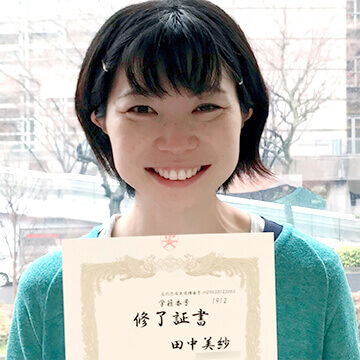 学籍番号 1912
修了証書
田中美紗